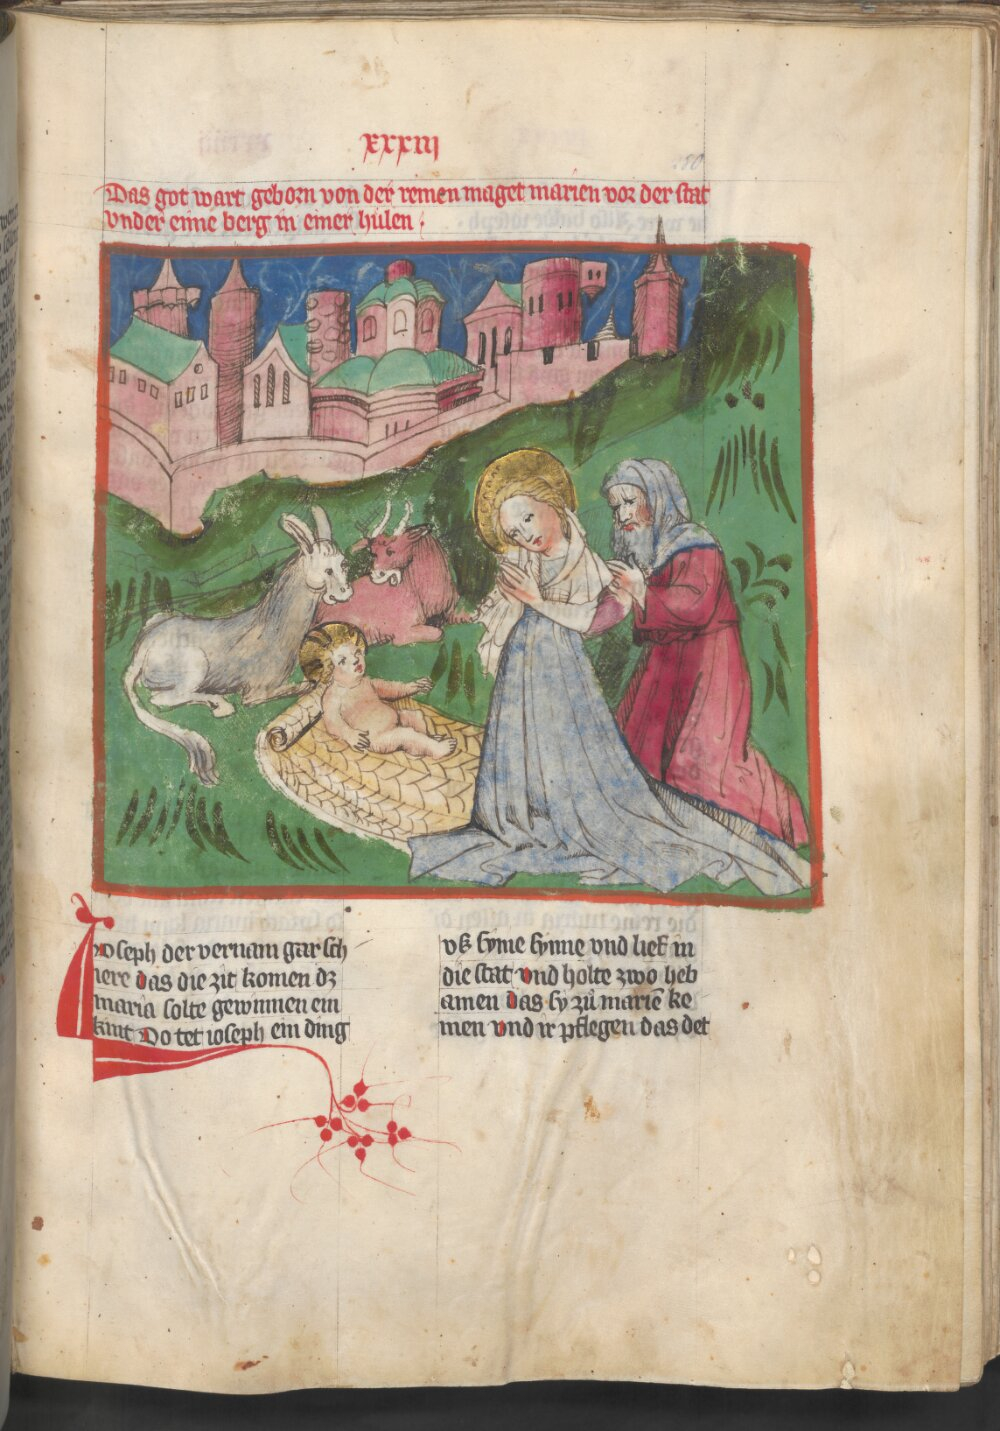 xxxiij
.80
Das got wart geborn von der reinen maget marien vor der stat
vnder eime berg in einer hulen :
Ioseph der vernam gar sch
iere das die zit komen dz
maria solte gewinnen ein
kint Do tet ioseph ein ding
vß syme synne vnd lief in
die stat vnd holte zwo heb
amen das sy zů mariē ke
men vnd ir pflegen das det